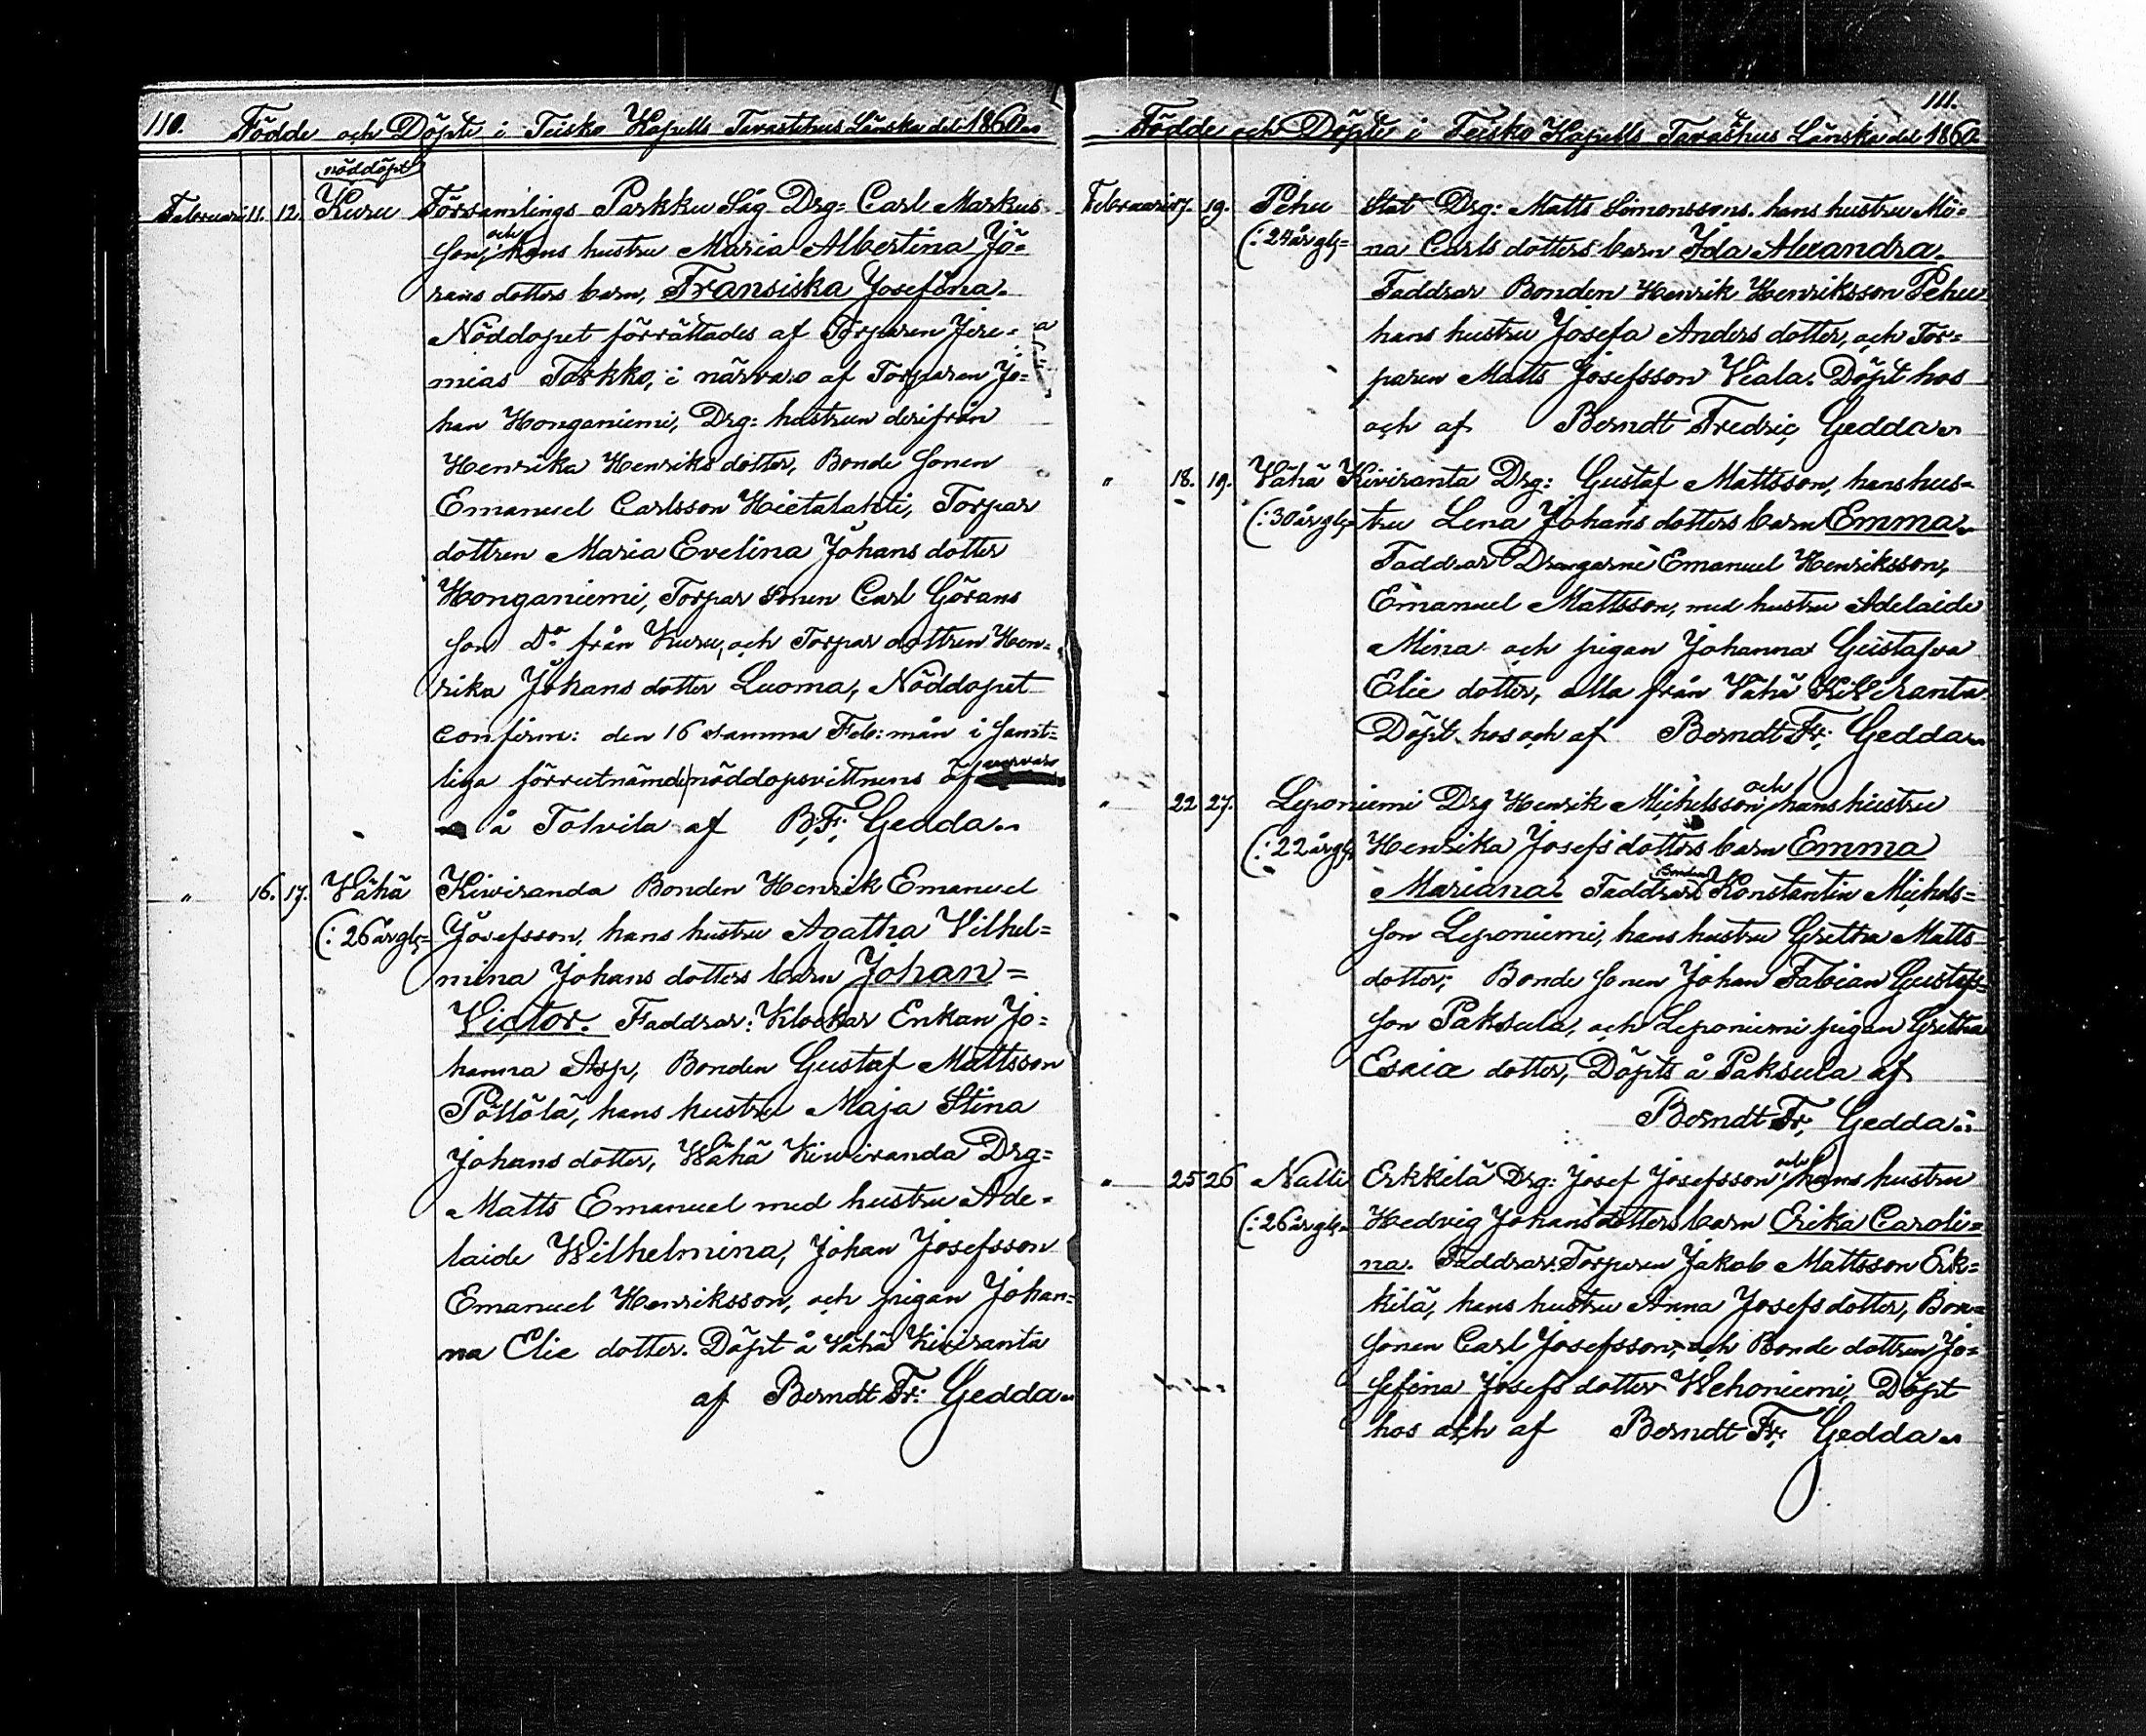 110. Födde och Döpte i Teisko Kapells Tavastehus Länska del 1860.
nöddöpt
Februari 11. 12. Kuru Församlings Parkku Såg Drg: Carl Markus
son, och hans hustru Maria Albertina Jö=
rans dotters barn, Fransiska Josefina.
Nöddopet förrättades af Torparen Jere=
mias Torkko, i närvaro af Torparen Jo=
han Honganiemi, Drg: hustrun derifrån
Henrika Henriks dotter, Bonde sonen
Emanuel Carlsson Hietalahti, Torpar
dottren Maria Evelina Johans dotter
Honganiemi, Torpar sonen Carl Görans
son Do från Kuru, och Torpar dottren Hen=
rika Johans dotter Luoma, Nöddopet
confirm: den 16 samma Feb: mån i samt=
liga förrutnämde nöddopsvittnens närvaro
å Tolvila af B. F. Gedda.
" 16. 17. Vähä Kiwiranda Bonden Henrik Emanuel
(: 26 år gl= Josefsson, hans hustru Agatha Vilhel=
mina Johans dotters barn Johan=
Victor. Faddrar: Klockar Enkan Jo=
hanna Asp, Bonden Gustaf Mattsson
Pöllölä, hans hustru Maja Stina
Johans dotter, Wähä Kiwiranda Drg=
Matts Emanuel med hustru Ade=
laide Wilhelmina, Johan Josefsson
Emanuel Henriksson, och pigan Johan=
na Elie dotter. Döpt å Vähä Kiviranta
af Berndt Fr: Gedda.
111.
Födde och Döpte i Teisko Kapells Tavasthus Länska del 1860.
Februari 17. 19. Pehu Stat Drg: Matts Simonssons. hans hustru Mi=
(: 24 år gl= na Carls dotters barn Ida Alexandra.
Faddrar Bonden Henrik Henriksson Pehu
hans hustru Josefa Anders dotter, och Tor=
paren Matts Josefsson Viala. Döpt hos
och af Berndt Fredric Gedda.
" 18. 19. Vähä Kiviranta Drg: Gustaf Mattsson, hans hus=
(: 30 år gl= tru Lena Johans dotters barn Emma.
Faddrar Drangarne Emanuel Henriksson,
Emanuel Mattsson, med hustru Adelaide
Mina och pigan Johanna Gustafva
Elie dotter, alla från Vähä Kiviranta
Döpt hos och af Berndt Fr: Gedda.
" 22 27. Leponiemi Drg Henrik Michelsson, och hans hustru
(: 22 år gl Henrika Josefs dotters barn Emma
Mariana. Faddrar Bonden Konstantin Michels=
son Leponiemi, hans hustru Gretha Matts
dotter; Bonde sonen Johan Fabian Gustafs=
son Paksula, och Leponiemi pigan Gretha
Esaiæ dotter, Döpts å Paksula af
Berndt Fr, Gedda.
" 25 26 Nalli Erkkilä Drg: Josef Josefsson, och hans hustru
(: 26 år gl= Hedvig Johans dotters barn Erika Caroli=
na. Faddrar: Torparen Jakob Mattsson Erk=
kilä, hans hustru Anna Josefs dotter, Bon=
sonen Carl Josefsson, och Bonde dottren Jo=
sefina Josefs dotter Wehoniemi, Döpt
hos och af Berndt Fr: Gedda.